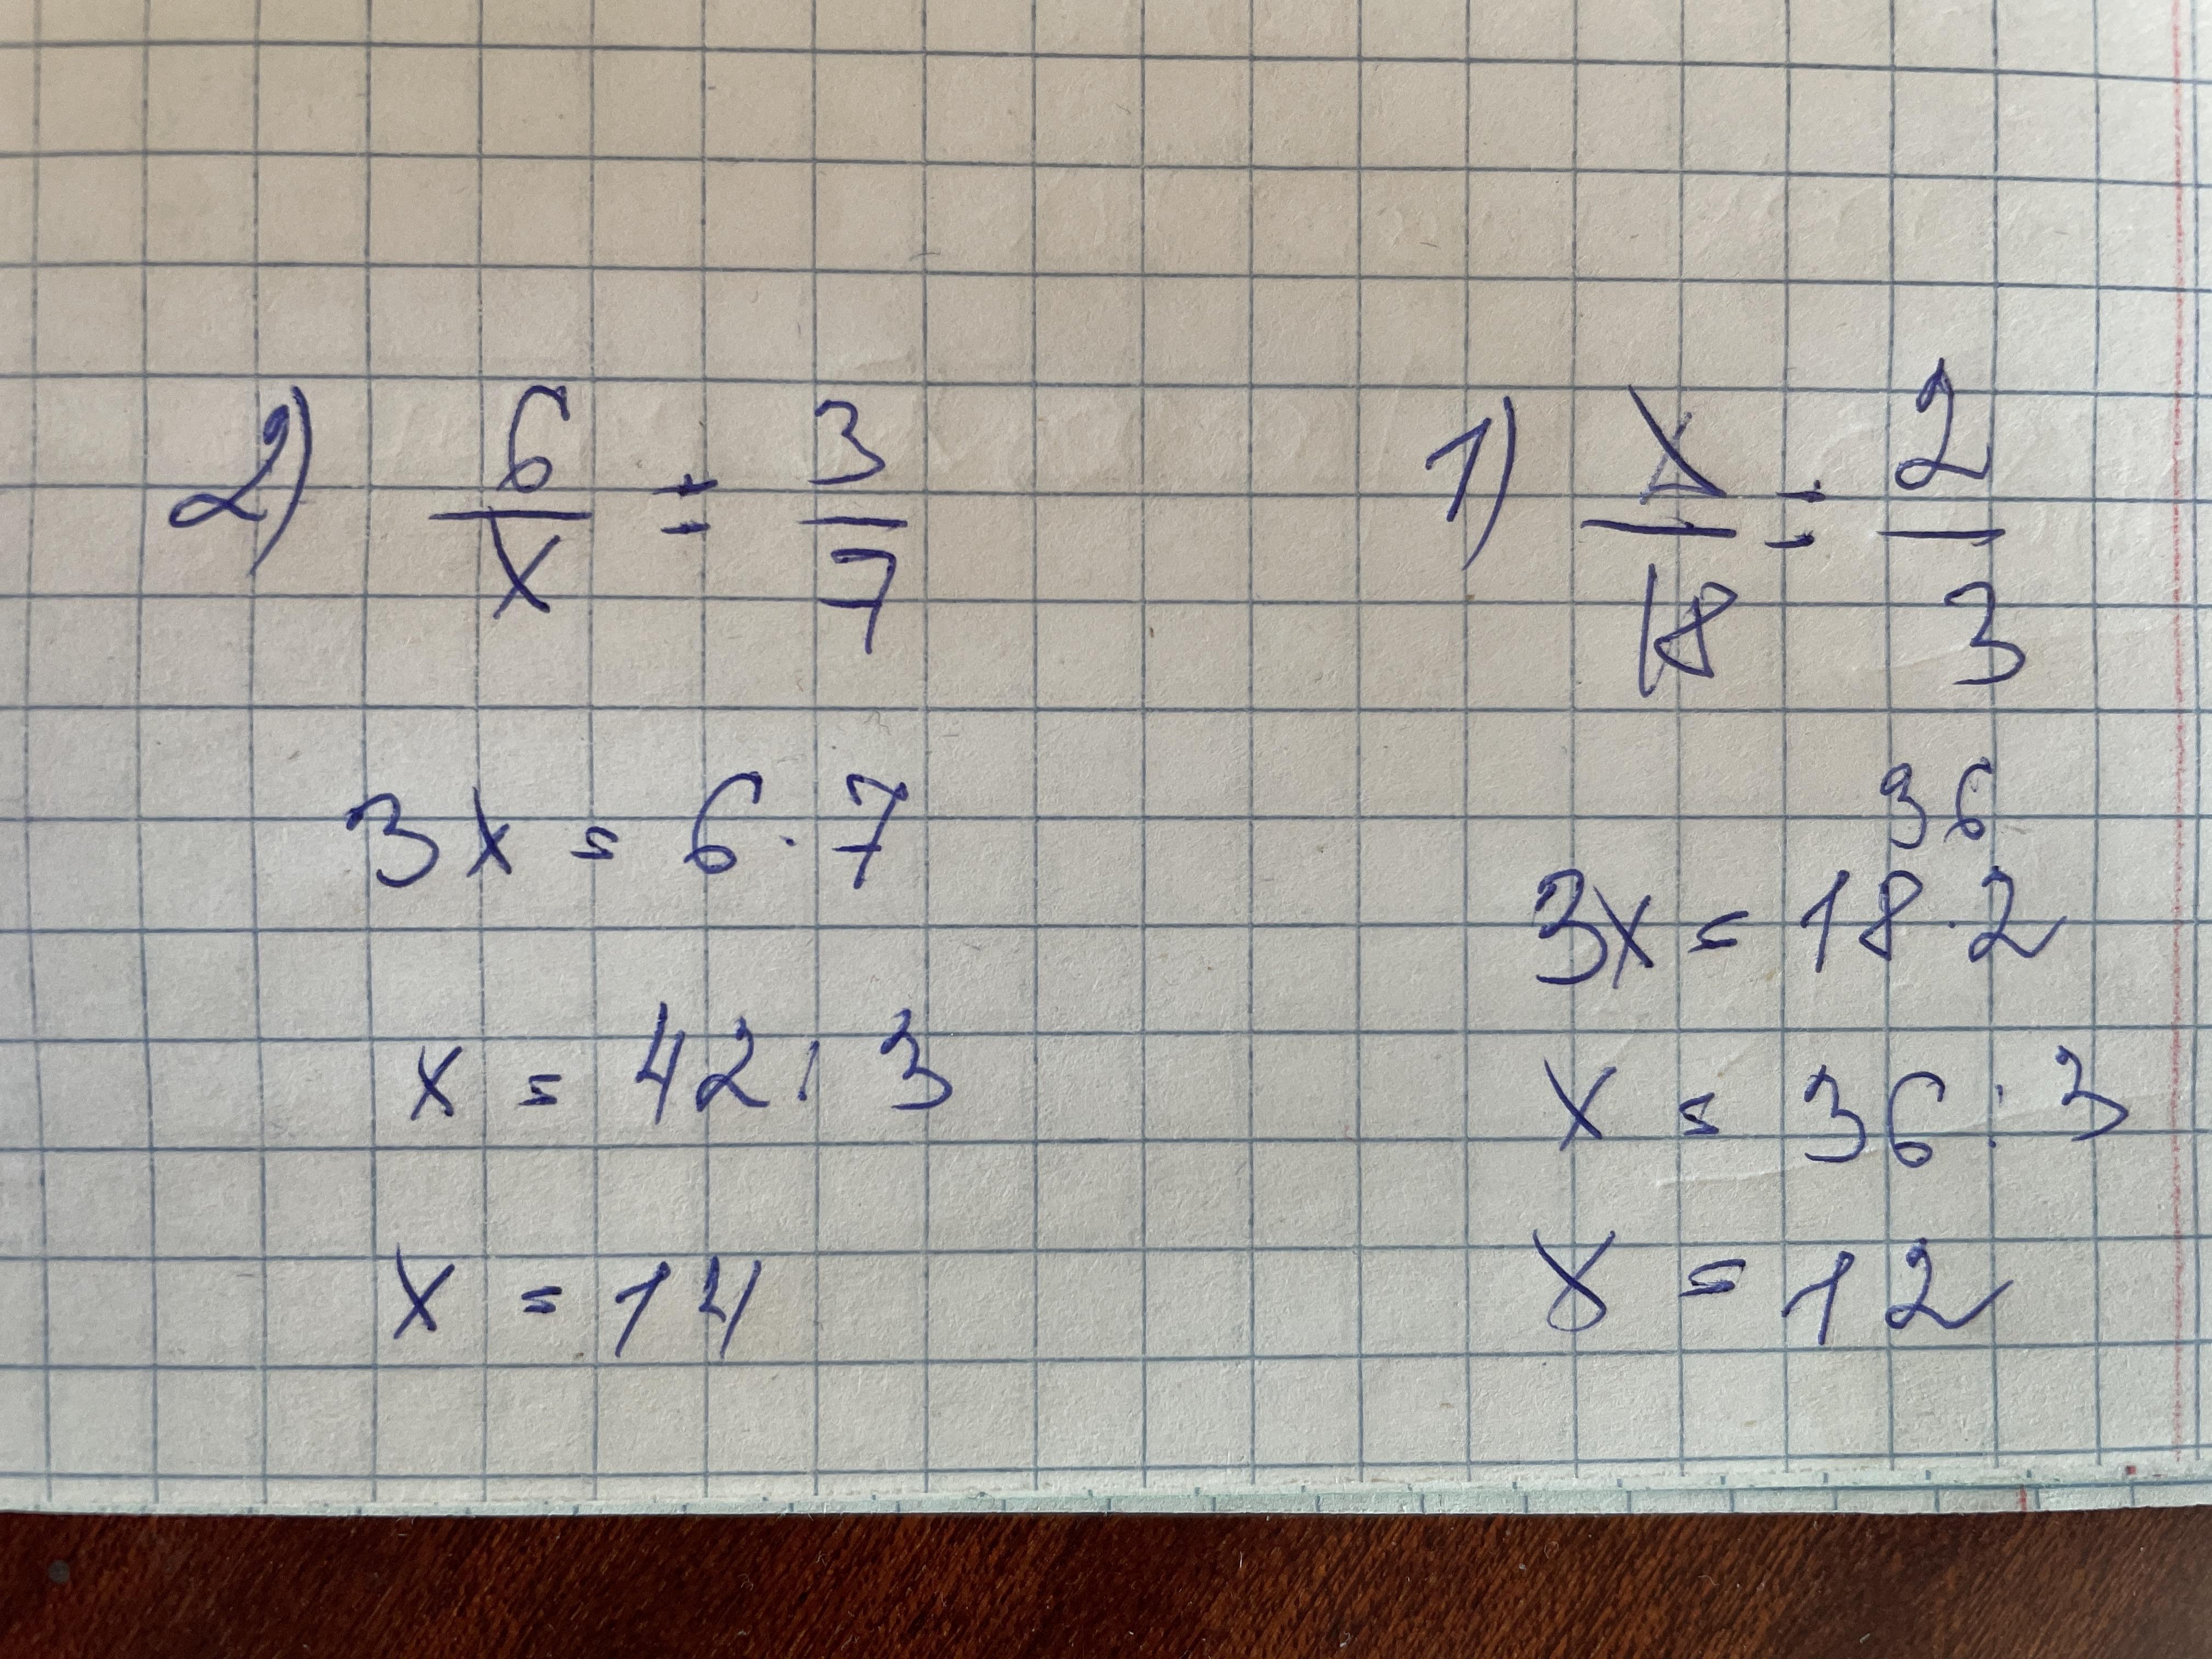 2) 6/x = 3/7
3x = 6·7
x = 42:3
x = 14
1) x/18 = 2/3
36
3x = 18·2
x = 36:3
x = 12